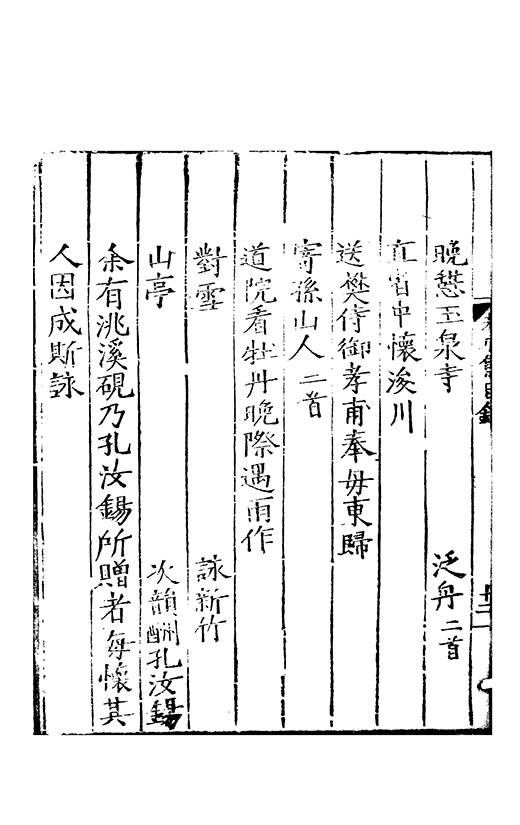 晚憇玉泉寺　泛舟二首
直宵中懷浚川
送樊侍御孝甫奉母東歸
寄孫山人二首
道院看牡丹晚際遇雨作
對雪　詠新竹
山亭　次韻酬孔汝錫
余有洮溪硯乃孔汝錫所贈者每懷其
人因成斯詠